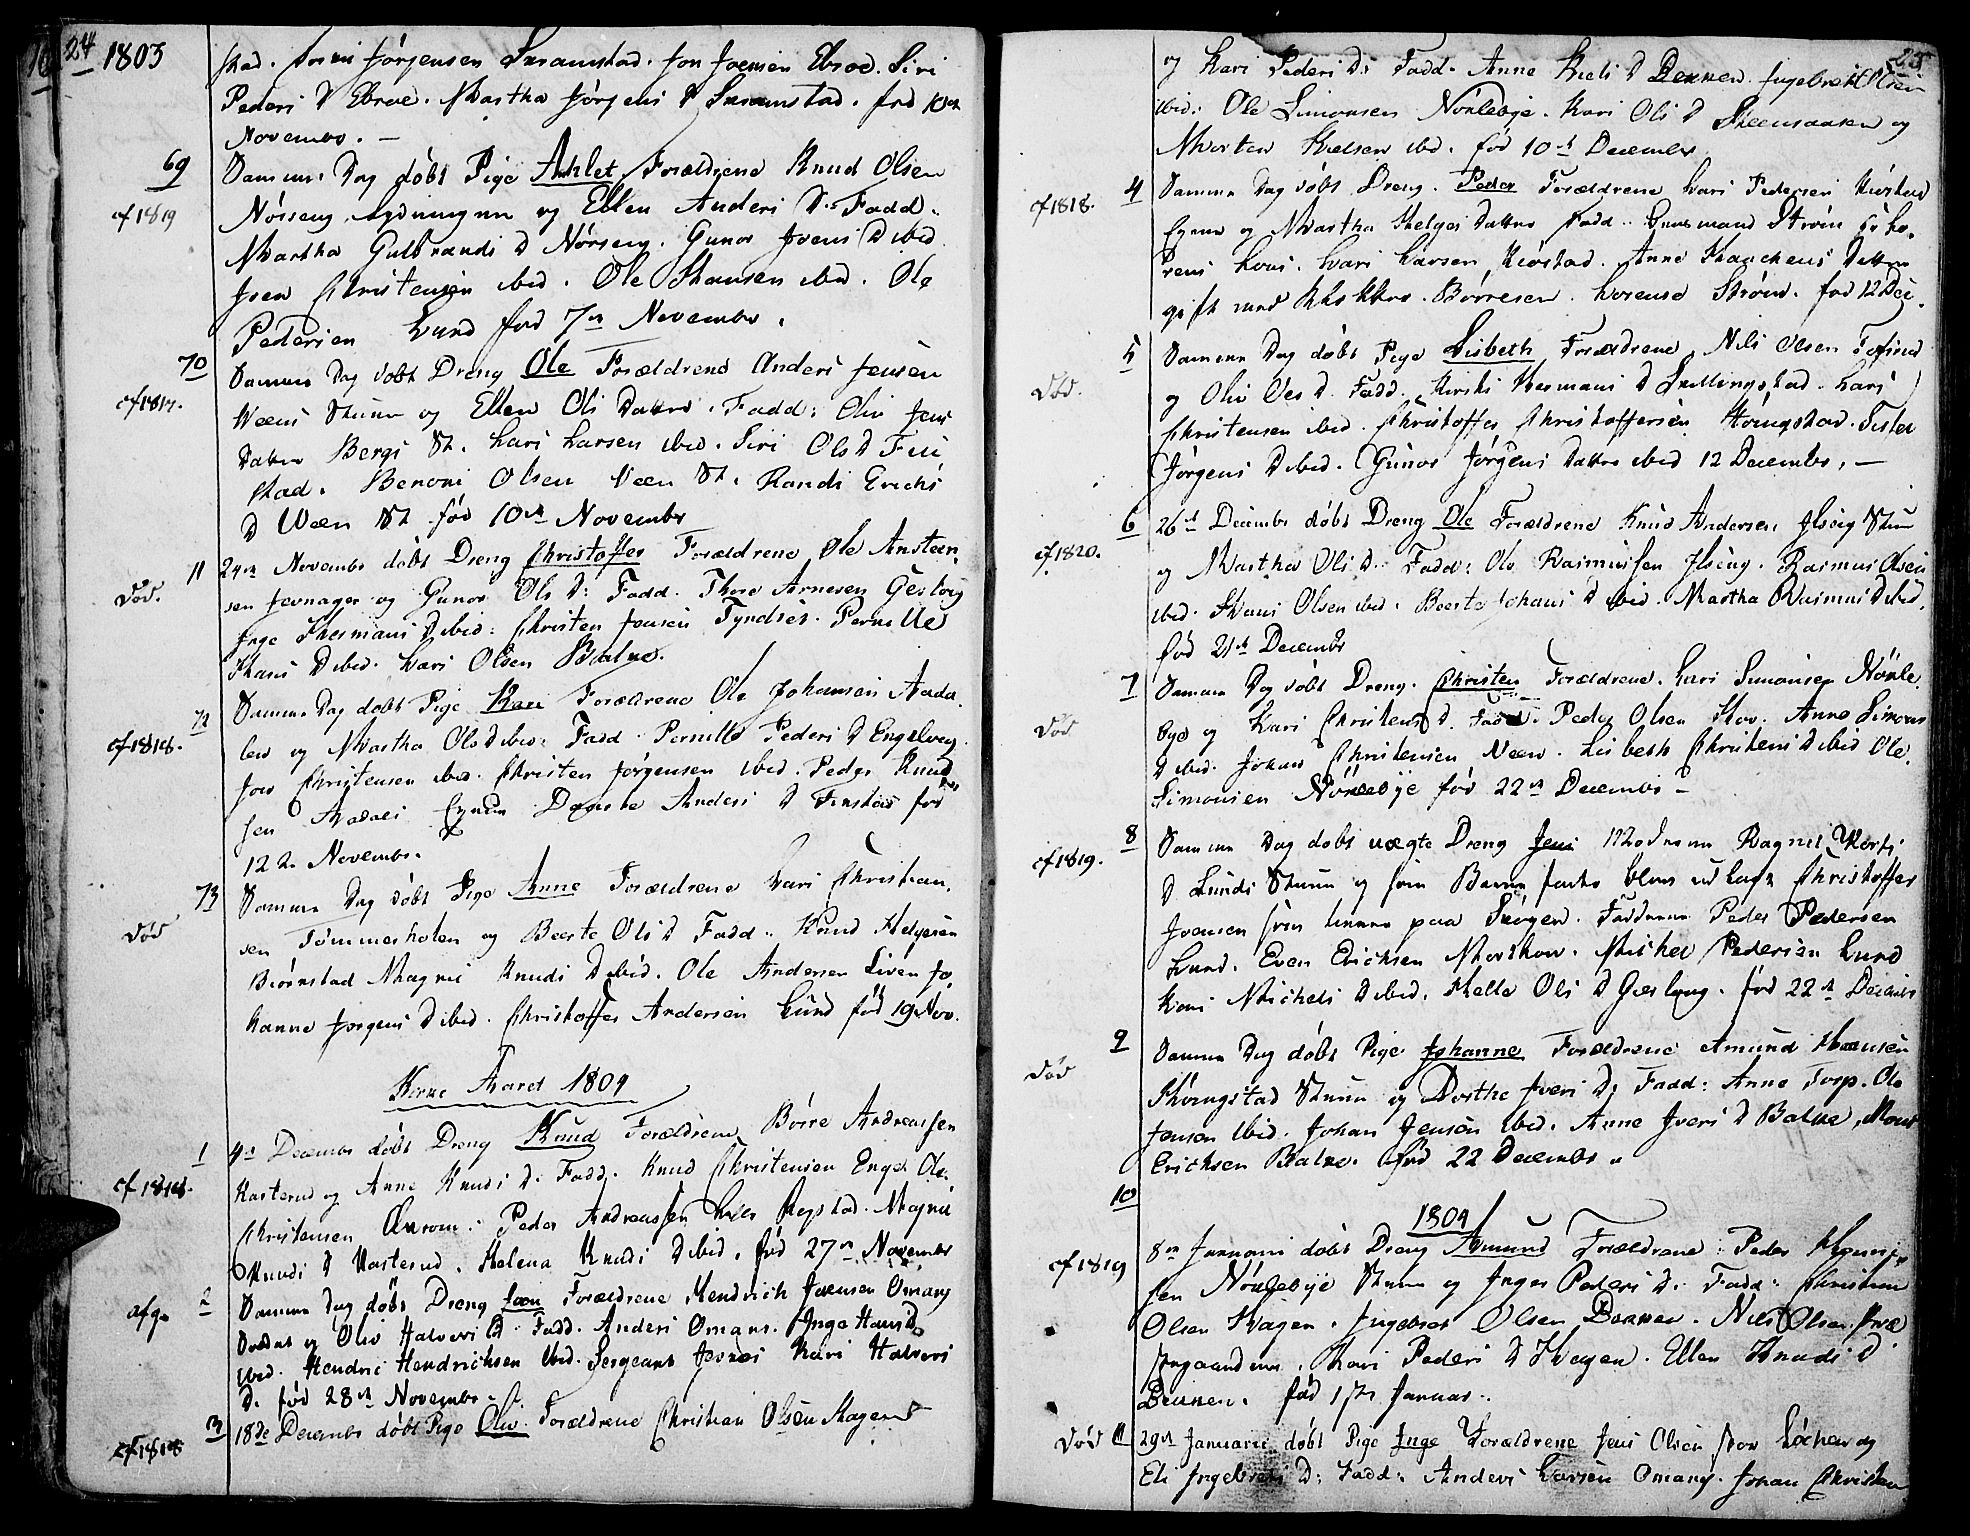 24
1803
stad. Jørgensen Saamstad. Jon Joensen Ebroe. Siri
Peders D Ebroe. Martha Jørgens D Saamstad. fød 10de
Novembr. —
69
Samme Dag døbt Pige Anlet Forældrene Knud Olsen
cf 1819
Nørseng og Ellen Anders D. Fadd.
Martha Gulbrands D Nørseng. Gunor Joens D ibid
Joen Christensen ibid. Ole Hansen ibid. Ole
Pedersen Lund fød 7de Novembr.
70
Samme Dag døbt Dreng Ole Forældrene Anders Jensen
cf 1817.
Ween og Ellen Ols Datter. Fadd: Oliv Jens
Datter Bergs St. Lars Larsen ibid. Siri Ols D Fiii
stad. Benoni Olsen Ween St. Randi Erichs
D Ween St. fød 10de Novembr
71
24de Novembr døbt Dreng Christoffer Forældrene Ole Ansteen
død.
sen Jevnager og Gunor Ols D: Fadd. Thore Arnesen Gestvig
Inge Hermans D ibid: Christen Jensen Tyndset. Pernille
Hans D ibid. Lars Olsen Balke.
72
Samme Dag døbt Pige Kari Forældrene Ole Johansen Aada
cf 1818.
len og Martha Ols D ibid: Fadd. Pernille Peders D Engelvey
Joen Christensen ibid. Christen Jørgensen ibid. Peder Knud
sen Aadals Eynen Dorthe Anders D Finstad fød
12 Novembr.
73
Samme Dag døbt Pige Anne Forældrene Lars Christian
død
sen Tømmerholen og Beerte Ols D Fadd. Knud Helgesen
Biørnstad Magnil Knuds D ibid. Ole Andersen Liven Jo
hanne Jørgens D ibid. Christoffer Andersen Lund fød 19 Nov.
Kirke Aaret 1804
1
4de Decembr døbt Dreng Knud Forældrene Børre Andreassen
cf 1818.
Kasterud og Anne Knuds D: Fadd. Knud Christensen Enge Ole
Christensen Peder Andreassen Lille Regstad. Magnil
Knuds D Kasterud. Helena Knuds D ibid. fød 27de Novembr
2
Samme Dag døbt Dreng Joen Forældrene Hendrich Joensen Omang
afg.
og Oliv Halvors D Fadd. Anders Omang. Inge Hans D
ibid. Hendric Hendrichsen ibid. Sergeant Kari Halvors
D. fød 28de Novembr.
3
18de Decembr døbt Pige Oliv Forældrene Christian Olsen Hagen
cf 1818
25
og Kari Peders D: Fadd. Anne Niels D Dennen. Ingebret Olsen
ibid: Ole Simonsen Nørlebye. Kari Ols D Steensaasen og
Morten Nielsen ibd. fød 10de Decembr.
cf 1818. 4
Samme Dag døbt Dreng. Peder Forældrene Lars Pedersen Kiøstad
Eynen og Martha Helges Datter Fadd. Strøm
Lars Larsen Kiøstad. Anne Datter
gift med Børresen. Lorense Strøm. fød 12 Dec.
5
Samme Dag døbt Pige Lisbeth Forældrene Nils Olsen
død.
og Oliv Oes D. Fadd. Kirsti Hermans D Lars
Christensen ibid. Christoffer Christoffersen Høingstad. Sister
Jørgens D ibid. Gunor Jørgens Datter ibid 12 Decembr. —
6
26de Decembr døbt Dreng Ole Forældrene Knud Andersen Ilseng
cf 1820.
og Martha Ols D. Fadd: Ole Rasmussen Ilseng. Rasmus Olsen
ibid. Hans Olsen ibid. Beerte Johans D ibid. Martha Rasmus D ibid.
fød 21de Decembr
7
Samme Dag døbt Dreng. Christen Forældrene. Lars Simonsen Nørle
død
bye og Kari Christens D. Fadd. Peder Olsen Hov. Anne Simons
D ibid. Johan Christensen Ween. Lisbeth Christens D ibid Ole
Simonsen Nørlebye fød 22de Decembr —
8
Samme Dag døbt uægte Dreng Jens Moderen Ragnil
cf 1819.
D Lunds og som Barne fader blev udlagt Christoffer
Joensen paa Skogen. Fadderne Peder Pedersen
Lund. Even Erichsen Michel Pedersen Lund
Kari Michels D ibid. Helle Ols D Gieslyng. fød 22de Decembr
9
Samme Dag døbt Pige Johanne Forældrene Amund Hansen
død
Høingstad og Dorthe Ivers D: Fadd: Anne Torp. Ole
Jensen ibid. Johan Jensen ibid. Anne Ivers D Balke,
Erichsen Balke. fød 22 Decembr.
10
1804
cf 1819
8de Januari døbt Dreng Amund Forældrene: Peder
sen Nørlebye og Inger Peders D: Fadd: Christian
Olsen Hagen. Ingebret Olsen Dennen. Nils Olsen
Kari Peders D Hagen. Ellen Knuds D
Dennen. fød 1ste Januar.
død 11
29de Januarii døbt Pige Inge Forældrene Jens Olsen Løchen og
Eli Ingebrets D: Fadd: Anders Larsen Omang. Johan Christen